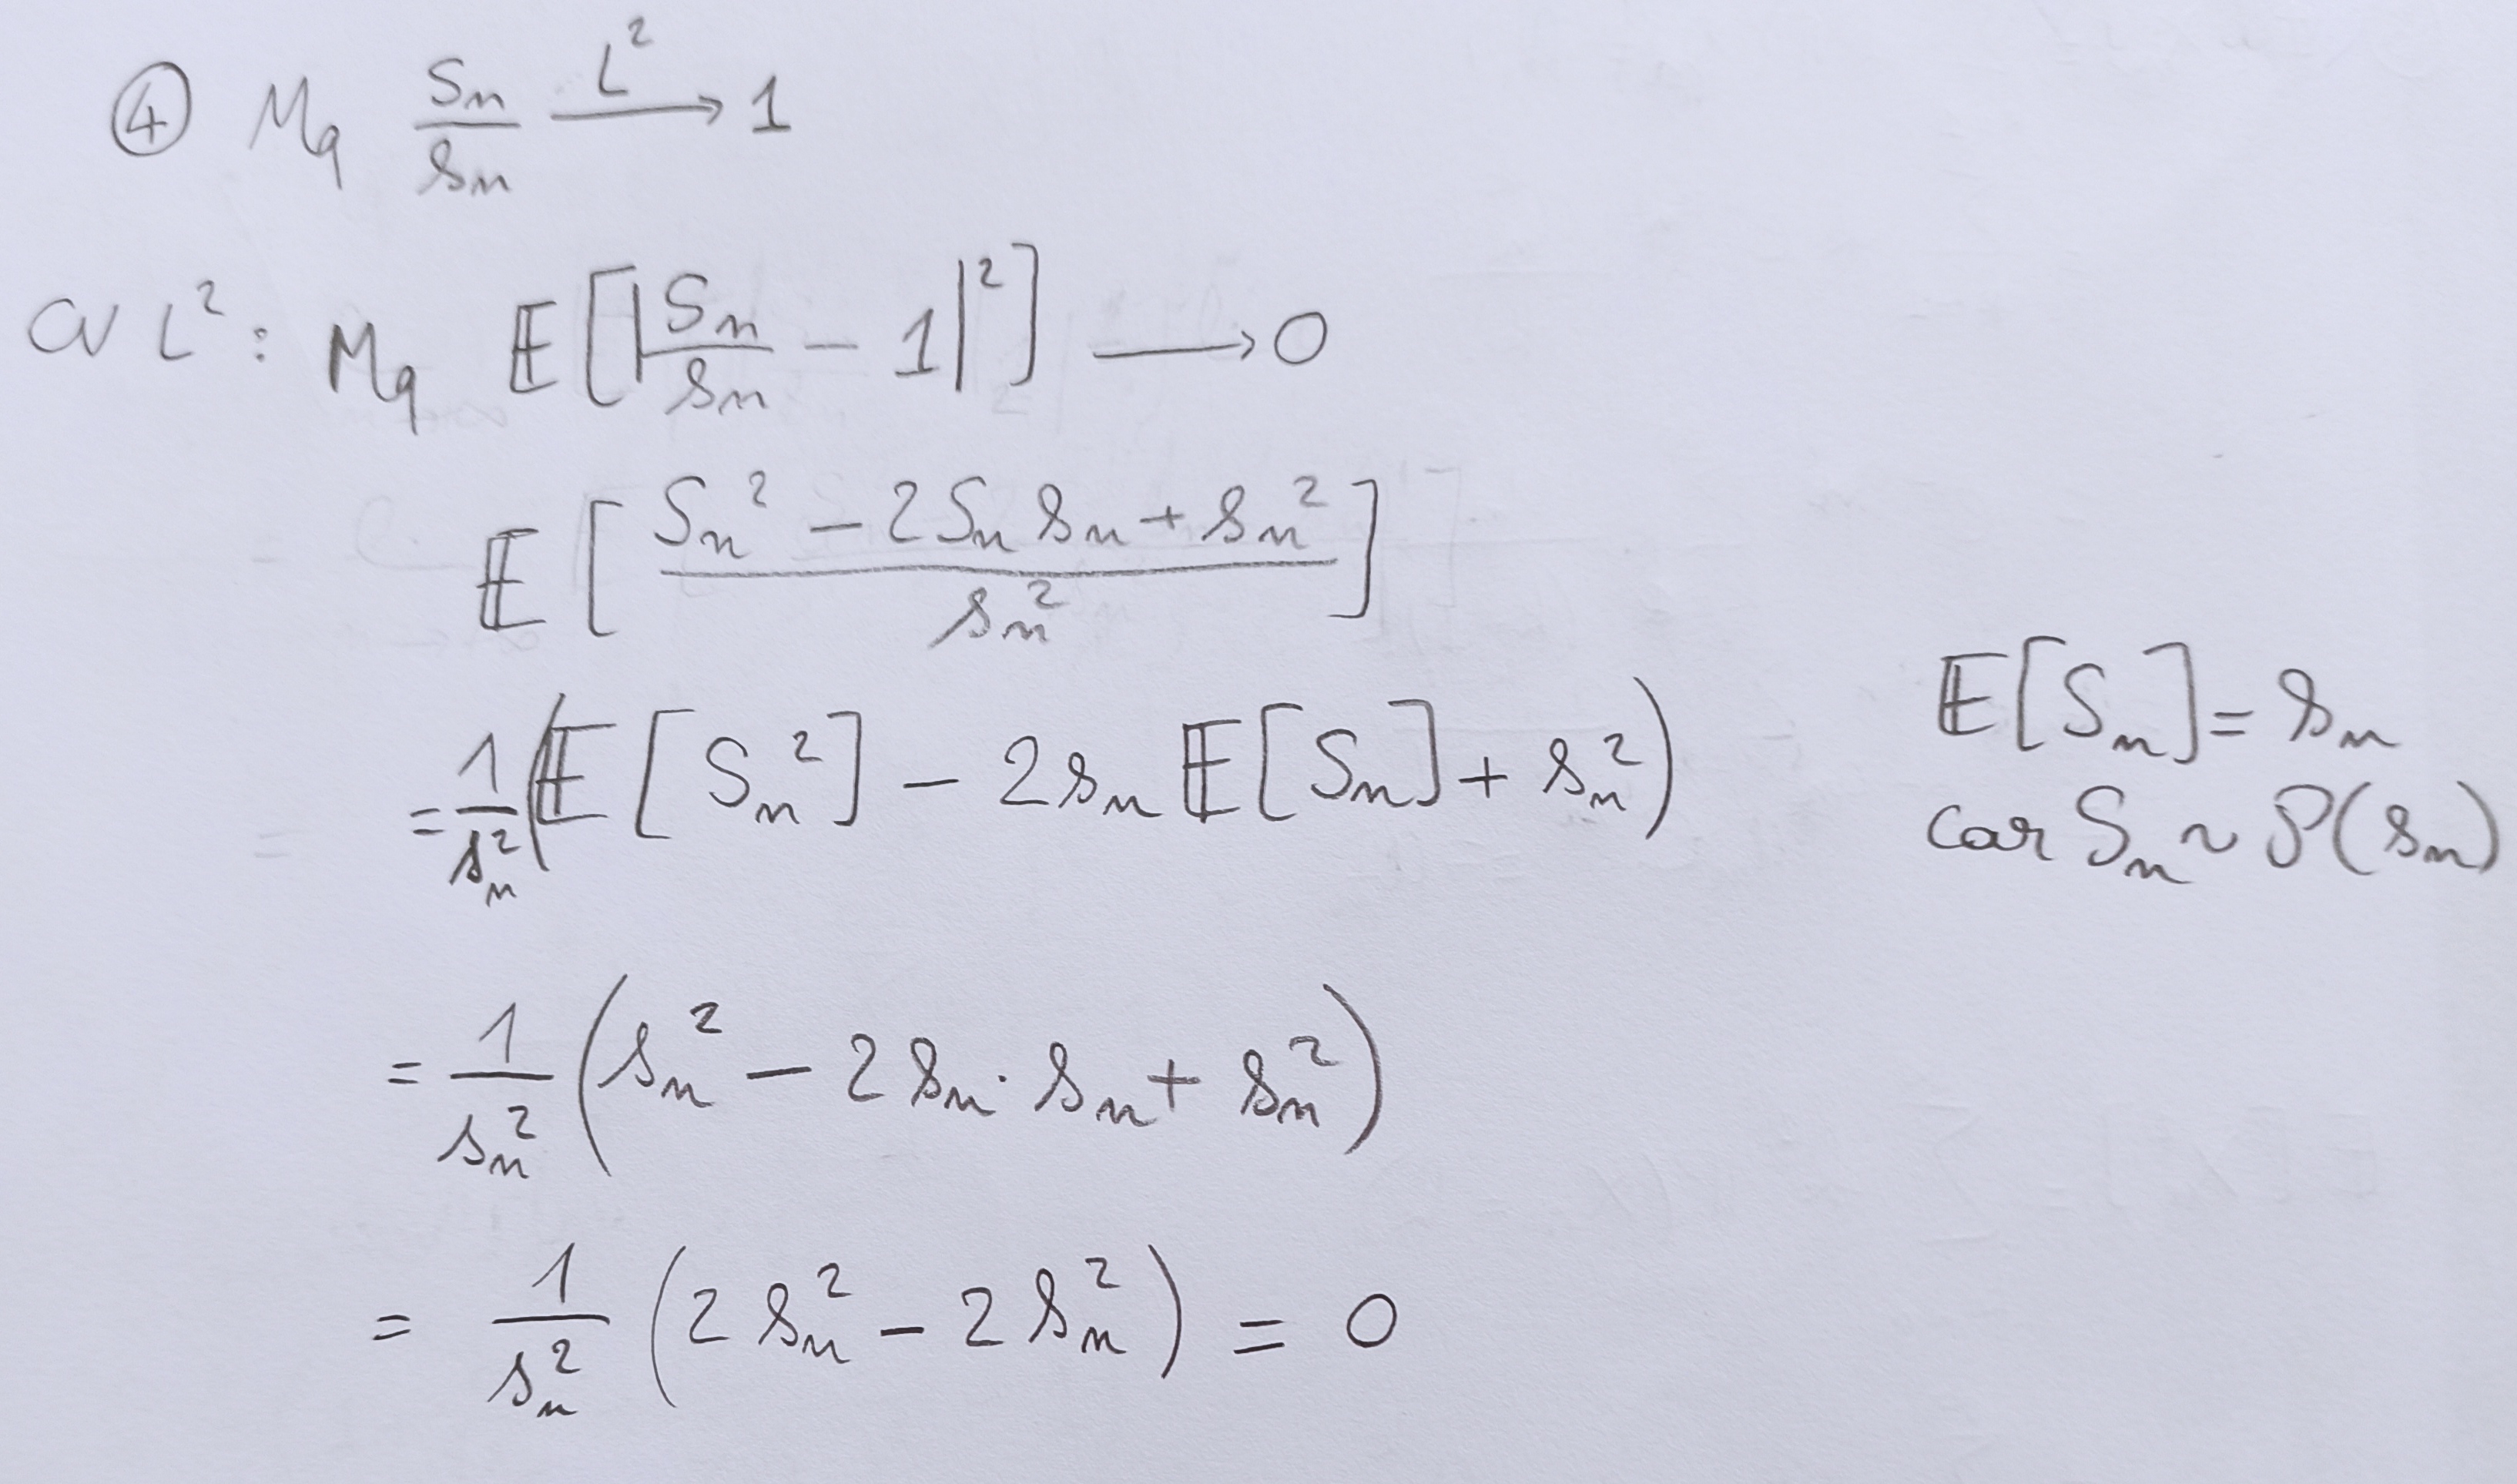 ④ Mq Sn/sn —L²→ 1
CV L² : Mq 𝔼[|Sn/sn − 1|²] ⟶ 0
𝔼[(Sn² − 2Sn sn + sn²)/sn²]
= 1/sn² (𝔼[Sn²] − 2sn 𝔼[Sn] + sn²)
𝔼[Sn] = sn
car Sn ~ P(sn)
= 1/sn² (sn² − 2sn · sn + sn²)
= 1/sn² (2sn² − 2sn²) = 0